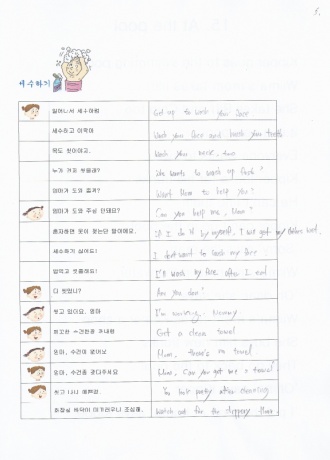 5.
세수하기
일어나서 세수해라 Get up to wash your face
세수하고 이닦아 Wash your face and brush your teeth
목도 씻어야고. Wash your neck, too
누가 먼저 씻을래? Who wants to wash up first?
엄마가 도와 줄까? Want Mom to help you?
엄마가 도와 주실 안돼요? Can you help me, Mom?
혼자하면 옷이 젖는단 말이에요. If I do it by myself, I will get my clothes wet.
세수하기 싫어요! I don't want to wash my face.
밥먹고 씻을래요! I'll wash my face after I eat
다 씻었니? Are you done?
씻고 있어요, 엄마 I'm Mommy
수건 Get a clean towel
엄마, 수건이 없어요 Mom, there's no towel
엄마, 수건좀 갖다주세요 Mom, Can you get me a towel?
씻고 나니 예쁘네. You look pretty after cleaning
화장실 바닥이 미끄러우니 조심해. Watch out for the slippery floor.